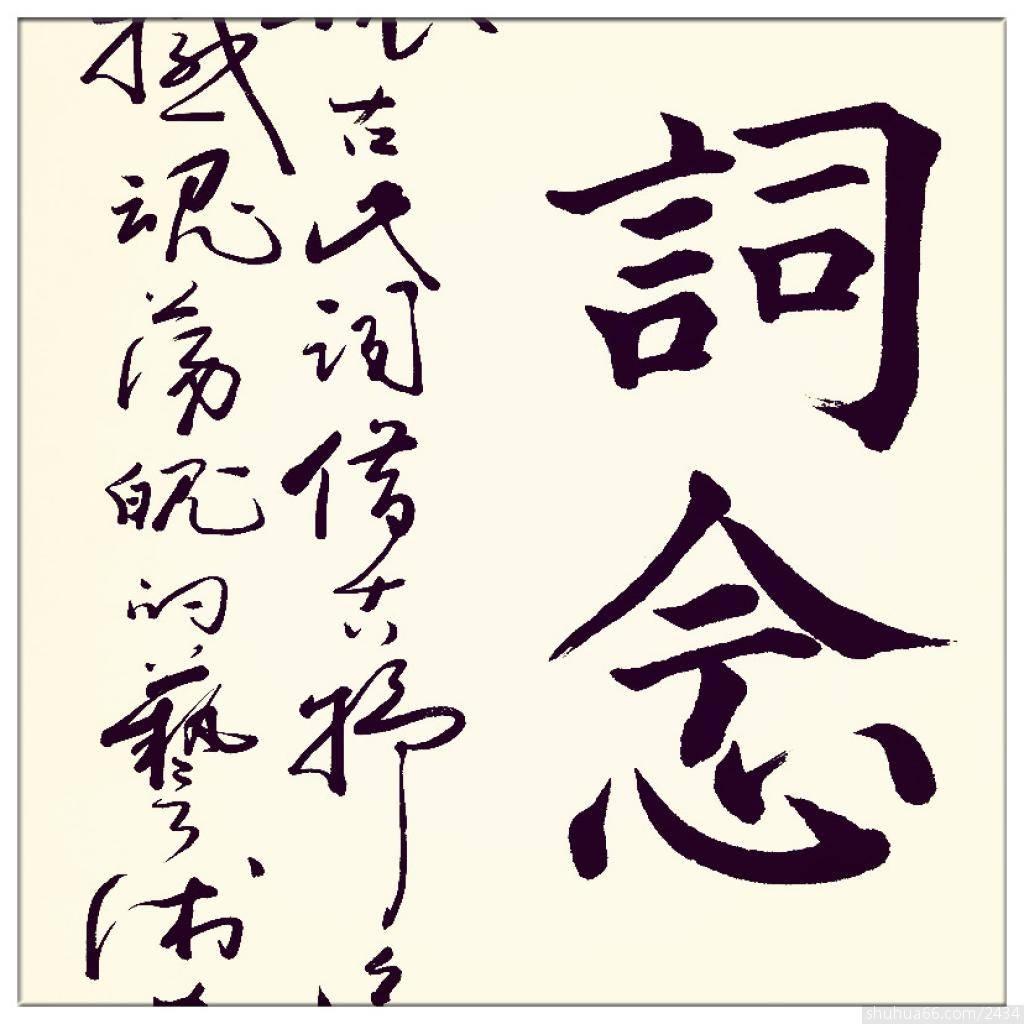 詞念
古代詞借古抒
撼魂蕩魄的藝術
shuhua66.com/2434